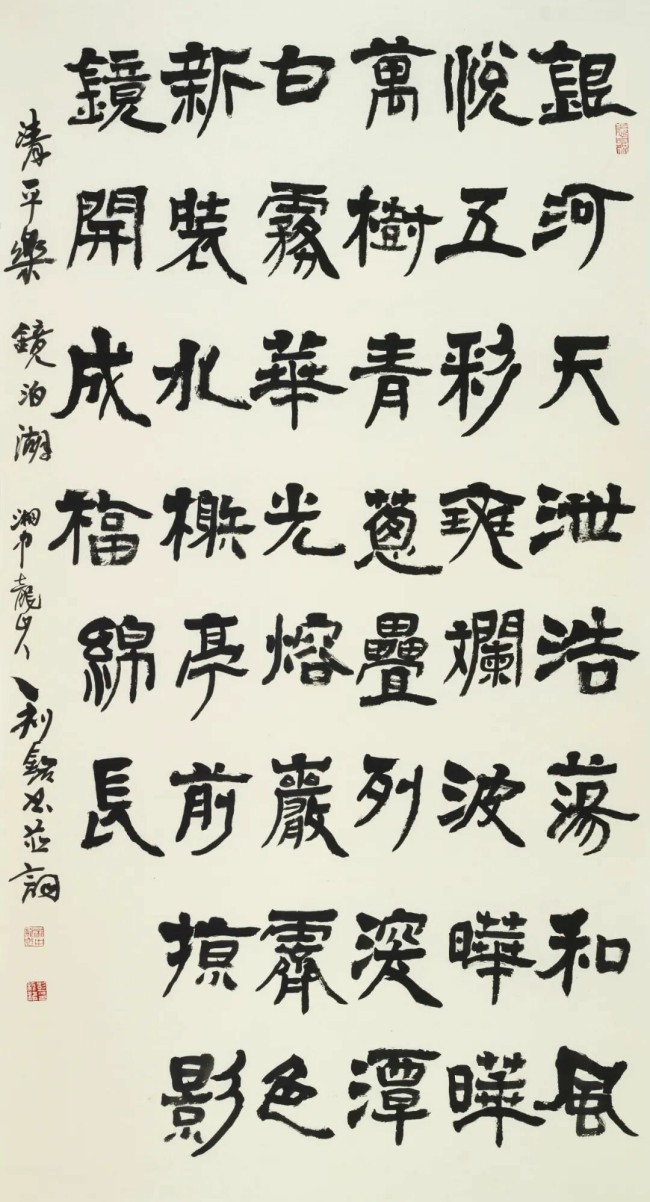 銀河天泄浩蕩和風
悅五彩斕波曄曄
萬樹青蔥疊列深潭
白霧華光熔巖霽色
新裝水榭亭前掠影
鏡開成福綿長
清平樂 鏡泊湖 湘中龍山人 利書並詞